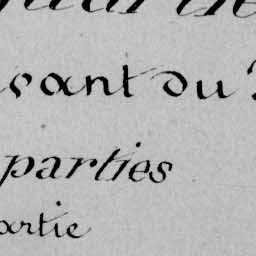 sant du
parties
artie